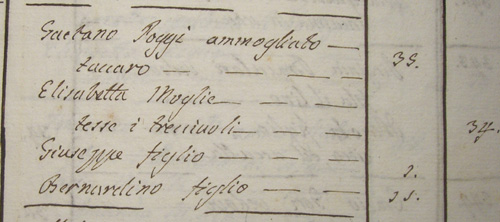 Gaetano Poggi ammogliato — 38.
taccaro — — — —
Elisabetta Moglie — — —
tesse i — — — 34.
Giuseppe figlio — — — 2.
Bernardino figlio — —